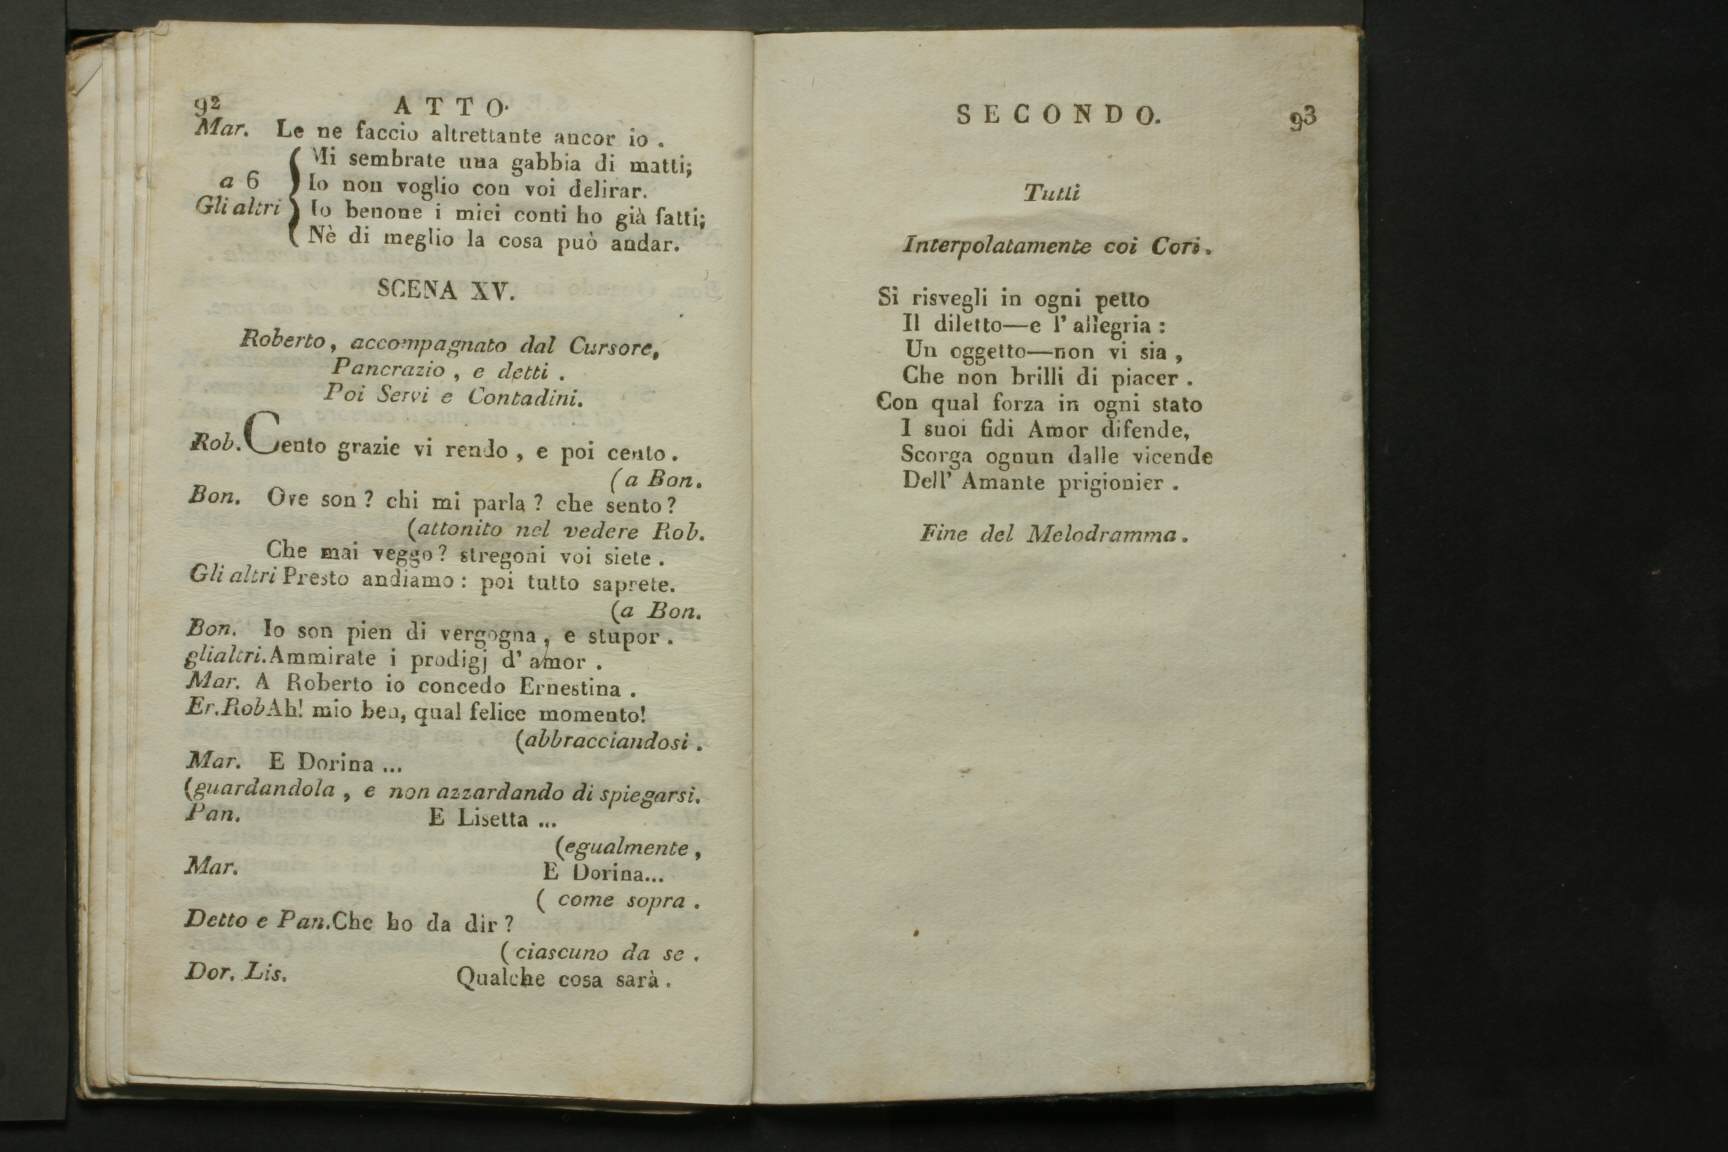 92 ATTO.
Mar. Le ne faccio altrettante ancor io .
Mi sembrate una gabbia di matti;
a 6 Io non voglio con voi delirar.
Gli altri Io benone i miei conti ho già fatti;
Nè di meglio la cosa può andar.
SCENA XV.
Roberto, accompagnato dal Cursore,
Pancrazio , e detti .
Poi Servi e Contadini.
Rob. Cento grazie vi rendo , e poi cento .
(a Bon.
Bon. Ove son ? chi mi parla ? che sento ?
(attonito nel vedere Rob.
Che mai veggo? stregoni voi siete .
Gli altri Presto andiamo : poi tutto saprete.
(a Bon.
Bon. Io son pien di vergogna , e stupor .
glialtri. Ammirate i prodigj d' amor .
Mar. A Roberto io concedo Ernestina .
Er. Rob Ah! mio ben, qual felice momento!
(abbracciandosi .
Mar. E Dorina ...
(guardandola , e non azzardando di spiegarsi.
Pan. E Lisetta ...
(egualmente ,
Mar. E Dorina...
( come sopra .
Detto e Pan. Che ho da dir ?
( ciascuno da se .
Dor. Lis. Qualche cosa sarà .
SECONDO. 93
Tutti
Interpolatamente coi Cori .
Si risvegli in ogni petto
Il diletto—e l' allegria :
Un oggetto—non vi sia ,
Che non brilli di piacer .
Con qual forza in ogni stato
I suoi fidi Amor difende,
Scorga ognun dalle vicende
Dell' Amante prigionier .
Fine del Melodramma .